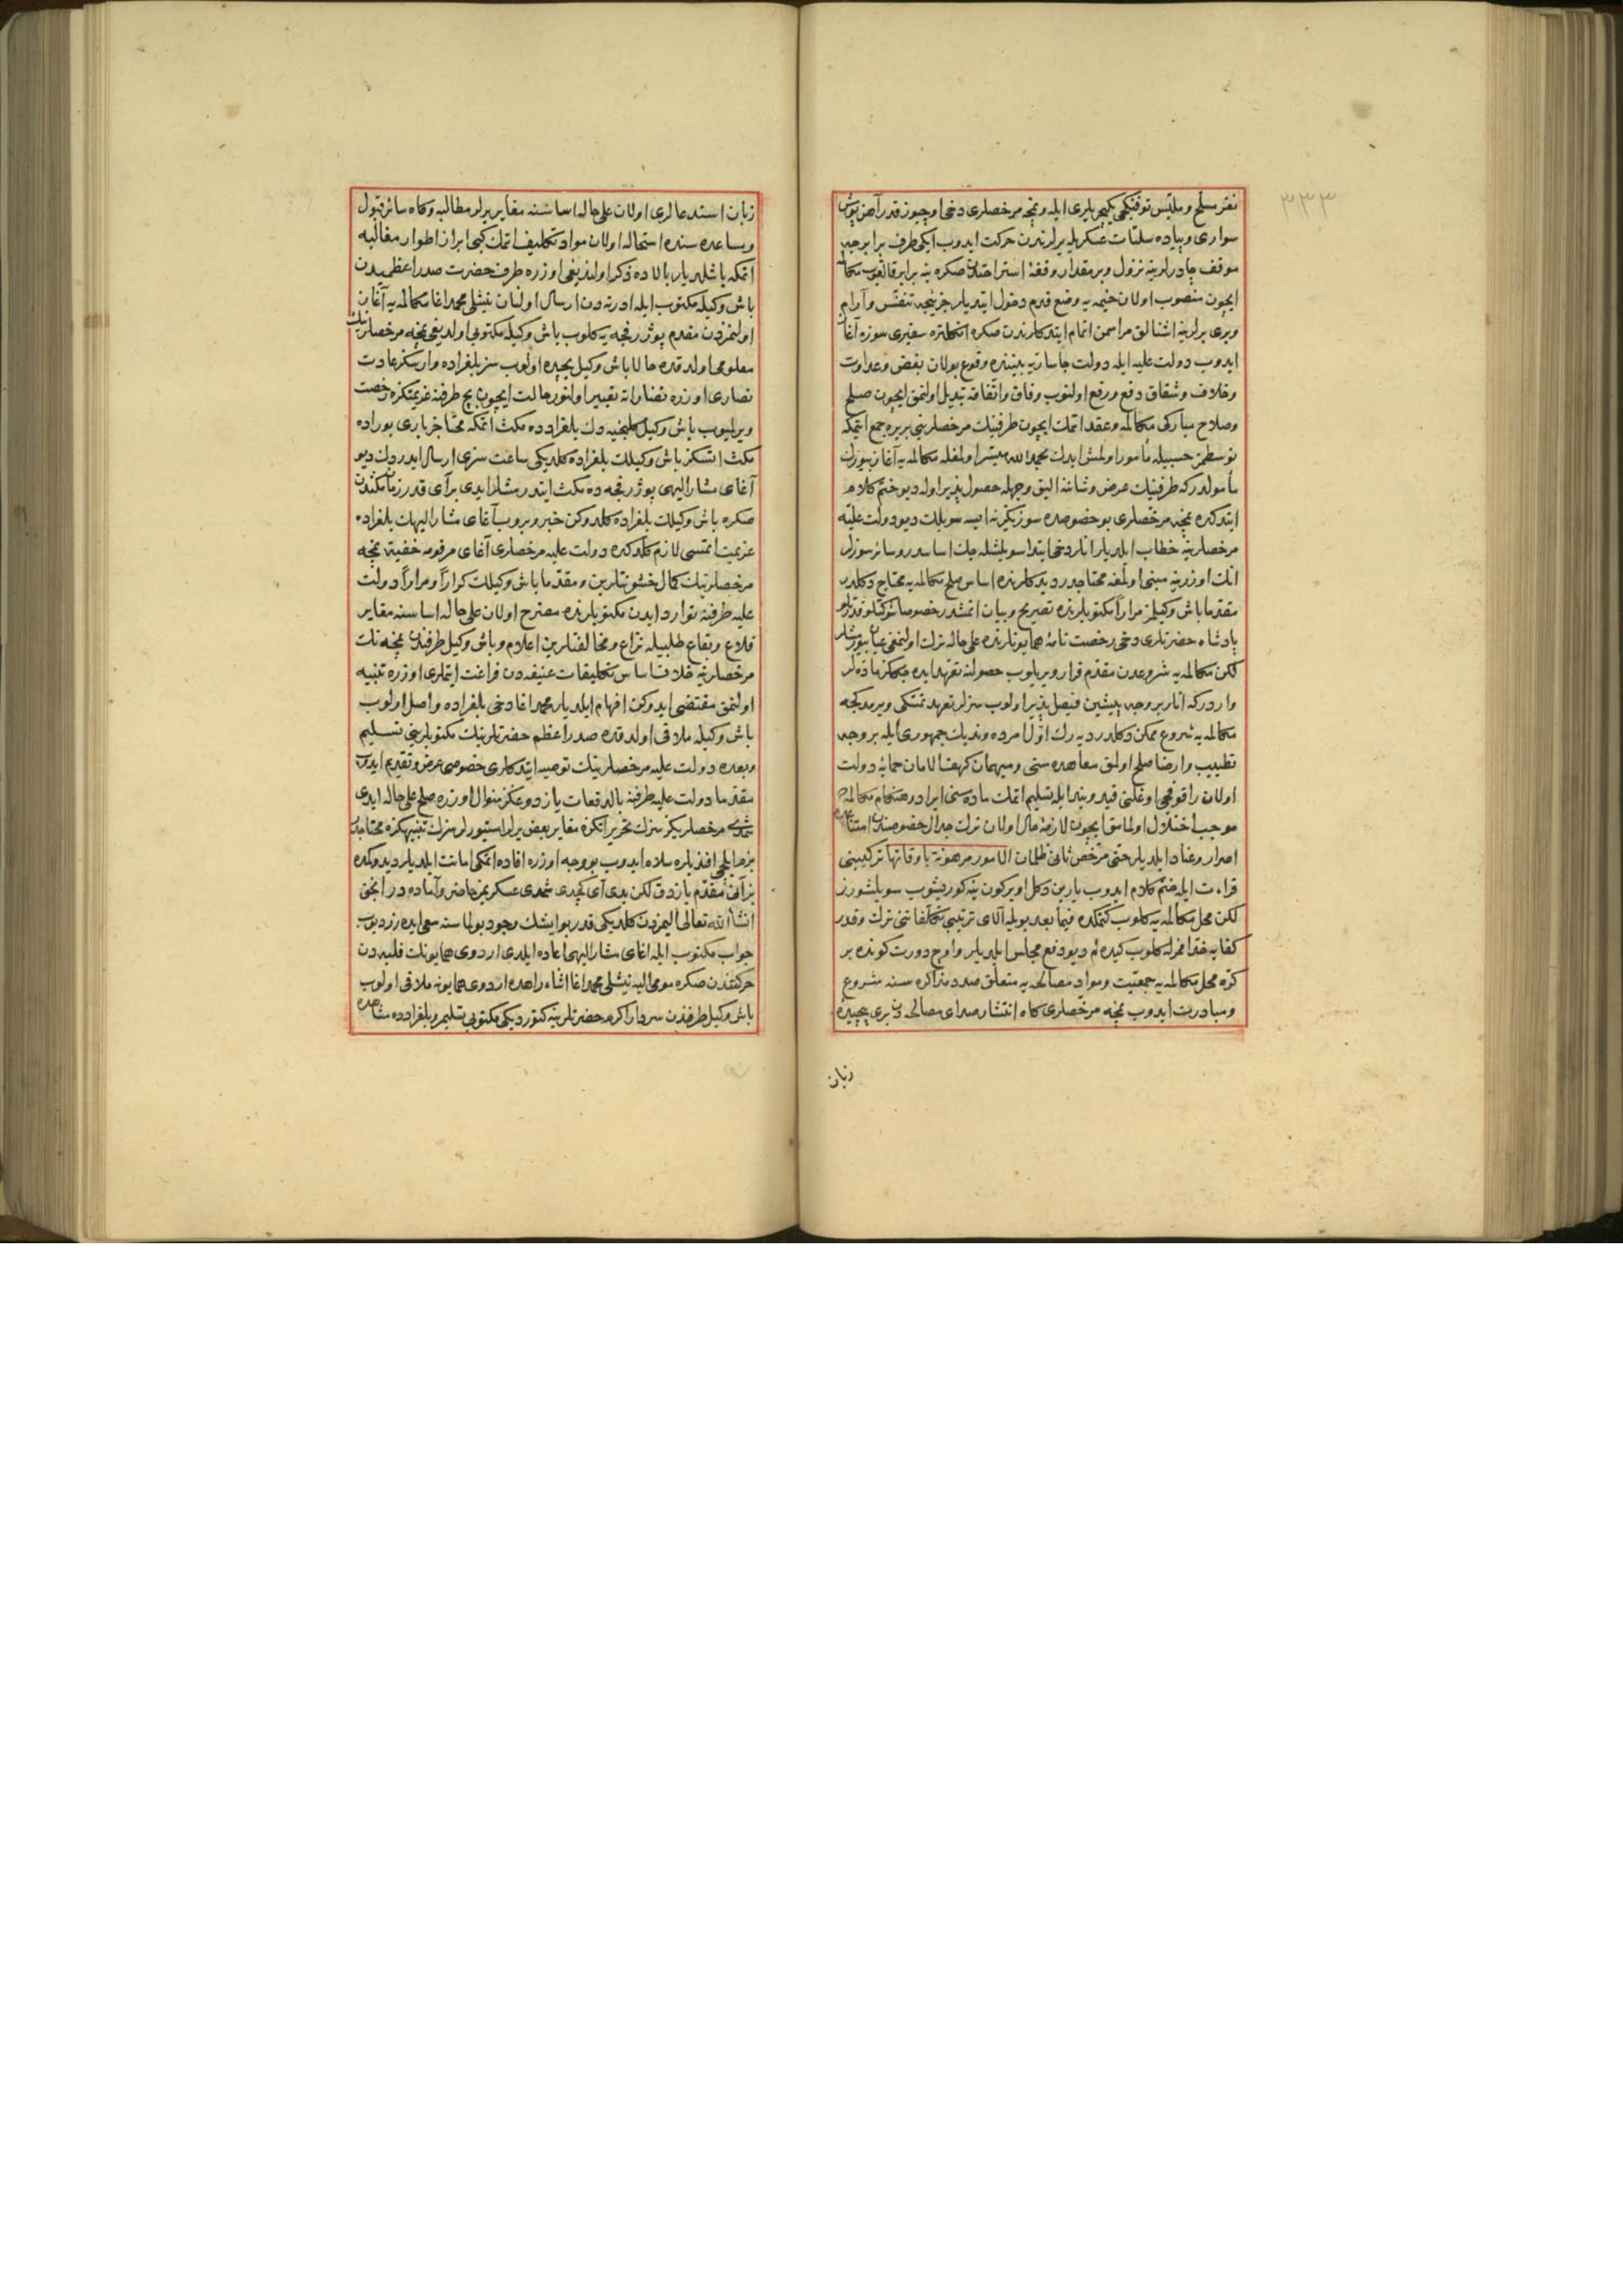 ٣٣٣
نفر مسلح وملبس توفنكچی یكیچریلری ایله ونمچه مرخصلری دخی اوچیوز قدر آهن پوش
سواری وپیاده سلتات عسكریله یرلرندن حركت ایدوب ایكی طرف برابرجه
موقف چادرلرینه نزول وبر مقدار وقفۀ استراحتدن صكره ینه برابر قالقوب مكالمه
ایچون منصوب اولان خیمه یه وضع قدم دخول ایتدیلر جزئیجه تنفس وآرام
وبری برلرینه اشنالق مراسمن اتمام ایتدكلرندن صكره انكلتره سفیری سوزه آغاز
ایدوب دولت علیه ایله دولت چاساریه بیننده وقوع بولان بغض وعداوت
وخلاف وشقاق دفع ورفع اولنوب وفاق واتفاقه تبدیل اولنمق ایچون صلح
وصلاح مباركی مكالمه وعقد اتمك ایچون طرفینك مرخصلرینی بریره جمع اتمكه
توسطمز حسبیله مأمور اولمش ایدك بحمد الله میسر اولمغله مكالمه یه آغاز بیورك
مأمولدر كه طرفینك عرض وشاننه الیق وجهله حصول پذیر اوله دیو ختم كلام
ایتدكده نمچه مرخصلری بو خصوصده سوزیكز نه ایسه سویلك دیو دولت علیه
مرخصلرینه خطاب ایلدیلر انلر دخی ابتدا سویلشله جك اساسدر وسائر سوزلر
انك اوزرینه مبنی اولمغه محتاجدر دیدكلرنده اساس صلح مكالمه یه محتاج دكلدر
مقدما باش وكیلمز مرارا مكتوبلرنده تصریح وبیان اتمشدر خصوصا شوكتلو قدرتلو
پادشاه حضرتلری دخی رخصت نامۀ همایونلرنده علی حاله ترك اولنمغی عیان بیورمشلر
لكن مكالمه یه شروعدن مقدم قرار ویریلوب حصولنه تعهد ایده جكمز ماده لر
واردر كه انلر بر وجه پیشین فیصل پذیر اولوب سزلر تعهد تمسكی ویرمدكجه
مكالمه یه شروع ممكن دكلدر دیه رك اول امرده وندیك جمهوری ایله بر وجه
تطییب وارضا صلح اولمق معاهده سنی ومیهمان كهف الامان حمایۀ دولت
اولان راقوفچی اوغلنی قید وبند ایله تسلیم اتمك ماده سنی ایراد وهنكام مكالمه ده
موجب اختلال اولماسق ایچون لازمۀ حال اولان ترك جدال خصوصندن امتناعده
اصرار وعناد ایلدیلر حتی مرخص ثانی طلمان الامور مرهونة باوقاتها تركیبینی
قراءت ایله ختم كلام ایدوب یارین دكل اوبر كون ینه كوریشوب سویلشورز
لكن محل مكالمه یه كلوب كتمكده فیما بعد بویله آلای ترتیبی تكلفاتنی ترك وقدر
كفایه خدامزله كلوب كیده لم دیو دفع مجلس ایلدیلر واوچ دورت كونده بر
كره محل مكالمه یه جمعیت ومواد مصالحه یه متعلق صدد مذاكره سنه شروع
ومبادرت ایدوب نمچه مرخصلری كاه انتشار صدای مصالحه دن بری بچیده
زبان
زبان استدعالری اولان علی حاله اساسنه مغایر یرلر مطالبه وكاه سائر قبول
ومساعده سنده استحاله اولان مواد تكلیف اتمك كبی ابراز اطوار مغالبه
اتمكه باشلدیلر بالاده ذكر اولندیغی اوزره طرف حضرت صدر اعظمیدن
باش وكیله مكتوب ایله ادرنه دن ارسال اولنان نیشلی محمد اغا مكالمه یه آغاز
اولنمزدن مقدم پوژرفچه یه كلوب باش وكیله مكتوبی اولدیغی نمچه مرخصلرینك
معلومی اولدقده حالا باش وكیل بچده اولوب سز بلغراده وارسكز عادت
نصاری اوزره قضارانه تعبیر اولنور حالت ایچون بچ طرفنه عزیمتكزه رخصت
ویرلیوب باش وكیل كلنجیه دك بلغرادده مكث اتمكه محتاج باری بوراده
مكث اتسكز باش وكیلك بلغراده كلدیكی ساعت سزی ارسال ایدردك دیو
آغای مشار الیهی پوژرفچه ده مكث ایتدرمشلر ایدی بر آی قدر زمان مكثدن
صكره باش وكیلك بلغراده كلدوكن خبر ویروب آغای مشار الیهك بلغراده
عزیمت اتمسی لازم كلدكده دولت علیه مرخصلری آغای مرقومه خفیة نمچه
مرخصلرینك كمال خشونتلرین ومقدما باش وكیلك كرارا ومرارا دولت
علیه طرفنه توارد ایدن مكتوبلرنده مصرح اولان علی حاله اساسنه مغایر
قلاع وبقاع طلبیله نزاع ومخالفتلرین اعلام وباش وكیل طرفندن نمچه نك
مرخصلرینه خلاف اساس تكلیفات عنیفه دن فراغت ایتملری اوزره تنبیه
اولنمق مقتضی ایدوكن افهام ایلدیلر محمد اغا دخی بلغراده واصل اولوب
باش وكیله ملاقی اولدقده صدر اعظم حضرتلرینك مكتوبلرینی تسلیم
وبعده دولت علیه مرخصلرینك توصیه ایتدكلری خصوصی عرض وتقدیم ایدوب
مقدما دولت علیه طرفنه بالدفعات یازدوغكز منوال اوزره صلح علی حاله ایدی
شمدی مرخصلریكز سزك تحریراتكزه مغایر بعض یرلر استیورلر سزك تنبیهكزه محتاجدر
بزم ایلچی افندیلره سلام ایدوب بو وجه اوزره افاده اتمكی امانت ایلدیلر دیدكده
بز آنی مقدم یازدق لكن یدی آی كچدی شمدی عسكریمز حاضر وآماده در انجق
انشاء الله تعالی الیمزدن كلدیكی قدر بو ایشك وجود بولماسنه سعی ایده رز دیوب
جواب مكتوب ایله اغای مشار الیهی اعاده ایلدی اردوی همایونك فلبه دن
حركتندن صكره مومی الیه نیشلی محمد اغا اثناء راهده اردوی همایونه ملاقی اولوب
باش وكیل طرفندن سردار اكرم حضرتلرینه كتوردیكی مكتوبی تسلیم وبلغرادده مشاهده